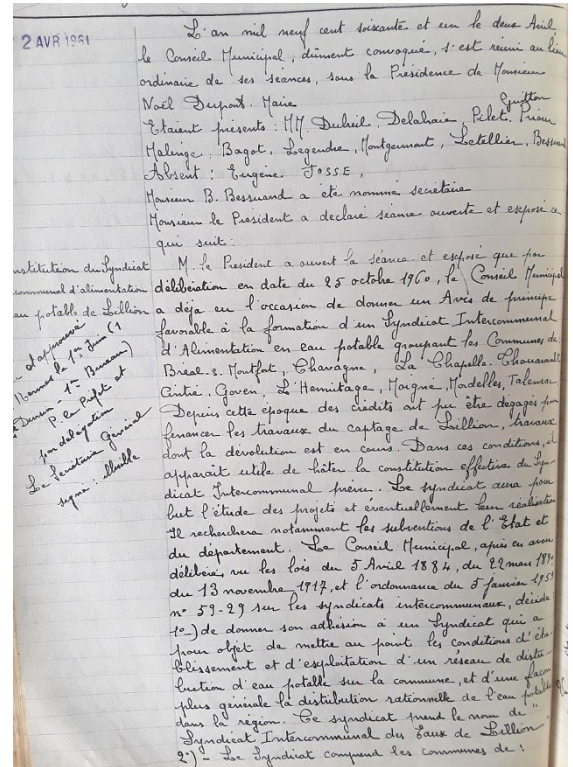 2 AVR 1961
L'an mil neuf cent soixante et un le deux Avril
le Conseil Municipal, dûment convoqué, s'est réuni au lieu
ordinaire de ses séances, sous la Présidence de Monsieur
Noël Dupont. Maire
Guitton
Etaient présents : MM. Duheil, Delahaie, Pilet, Priour
Malinge, Bagot, Legendre, Montgermont, Letellier, Bessuand
Absent : Eugène JOSSE,
Monsieur B. Bessuand a été nommé secrétaire
Monsieur le Président a déclaré séance ouverte et exposé ce
qui suit :
nstitution du Syndicat
communal d'alimentation
au potable de Lillion
d'approuvé
Rennes le 1er Juin (1
1er Bureau)
P. le Préfet et
par délégation
Le Secrétaire Général
signé : illisible
M. le Président a ouvert la séance et exposé que par
délibération en date du 25 octobre 1960, le Conseil Municipal
a déjà eu l'occasion de donner un Avis de principe
favorable à la formation d'un Syndicat Intercommunal
d'Alimentation en eau potable groupant les Communes de
Bréal-s. Montfort, Chavagne, La Chapelle-Thouarault
Cintré, Goven, L'Hermitage, Moigné, Mordelles, Talensac
Depuis cette époque des crédits ont pu être dégagés pour
financer les travaux du captage de Lillion, travaux
dont la dévolution est en cours. Dans ces conditions, il
apparaît utile de hâter la constitution effective du Syn-
dicat Intercommunal prévu. Le syndicat aura pour
but l'étude des projets et éventuellement leur réalisation
Il recherchera notamment les subventions de l'Etat et
du département. Le Conseil Municipal, après en avoir
délibéré, vu les lois du 5 Avril 1884, du 22 mars 1890
du 13 novembre 1917, et l'ordonnance du 5 janvier 1959
n° 59-29 sur les syndicats intercommunaux, décide
1°-) de donner son adhésion à un Syndicat qui a
pour objet de mettre au point les conditions d'éta-
blissement et d'exploitation d'un réseau de distri-
bution d'eau potable sur la commune, et d'une façon
plus générale la distribution rationnelle de l'eau potable
dans la région. Ce syndicat prend le nom de "
Syndicat Intercommunal des Eaux de Lillion"
2°) - Le Syndicat comprend les communes de :